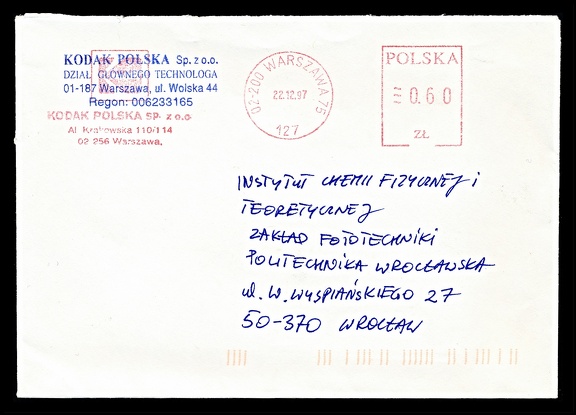 KODAK POLSKA Sp. z o.o.
DZIAŁ GŁÓWNEGO TECHNOLOGA
01-187 Warszawa, ul. Wolska 44
Regon: 006233165
KODAK POLSKA SP. z o.o.
Al. Krakowska 110/114
02 256 Warszawa.
02-200 WARSZAWA 75
22.12.97
127
POLSKA
0.60
ZŁ
INSTYTUT CHEMII FIZYCZNEJ i
TEORETYCZNEJ
ZAKŁAD FOTOTECHNIKI
POLITECHNIKA WROCŁAWSKA
ul. W. WYSPIAŃSKIEGO 27
50-370 WROCŁAW